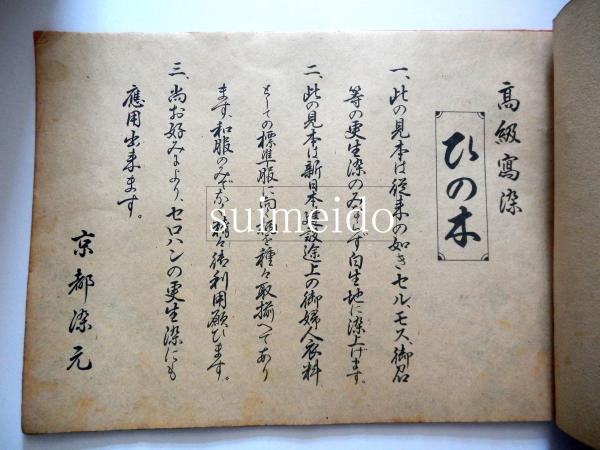 高級寫染
ひの木
一、此の見本は従来の如きセル、モス、御召
等の更生染のみならず白生地に染上げます。
二、此の見本は新日本建設途上の御婦人衣料
としての標準服に向く柄を種々取揃へてあり
ます、和服のみでなく精々御利用願ひます。
三、尚お好みにより、セロハンの更生染にも
應用出来ます。
京都染元
suimeido